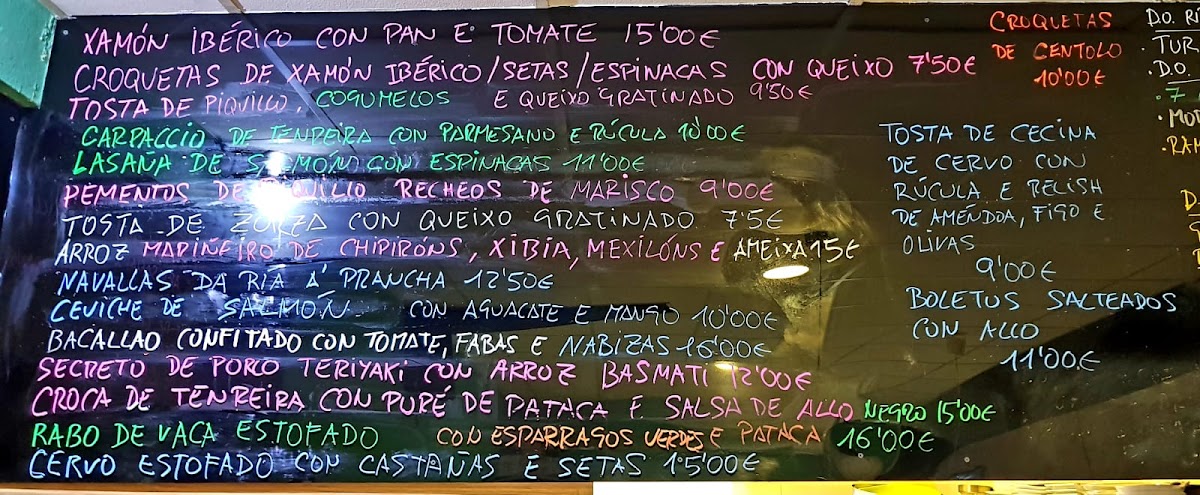 XAMÓN IBÉRICO CON PAN E TOMATE 15'00€
CROQUETAS DE XAMÓN IBÉRICO/SETAS/ESPINACAS CON QUEIXO 7'50€
TOSTA DE PIQUILLO, COGUMELOS E QUEIXO GRATINADO 9'50€
CARPACCIO DE TENREIRA CON PARMESANO E RÚCULA 10'00€
LASAÑA DE SALMÓN CON ESPINACAS 11'00€
PEMENTOS DE PIQUILLO RECHEOS DE MARISCO 9'00€
TOSTA DE ZORZA CON QUEIXO GRATINADO 7'5€
ARROZ MARIÑEIRO DE CHIPIRÓNS, XIBIA, MEXILÓNS E AMEIXA 15€
NAVALLAS DA RÍA Á PRANCHA 12'50€
CEVICHE DE SALMÓN CON AGUACATE E MANGO 10'00€
BACALLAO CONFITADO CON TOMATE, FABAS E NABIZAS 16'00€
SECRETO DE PORCO TERIYAKI CON ARROZ BASMATI 12'00€
CROCA DE TENREIRA CON PURÉ DE PATACA E SALSA DE ALLO NEGRO 15'00€
RABO DE VACA ESTOFADO CON ESPARRAGOS VERDES E PATACA 16'00€
CERVO ESTOFADO CON CASTAÑAS E SETAS 15'00€
CROQUETAS
DE CENTOLO
10'00€
TOSTA DE CECINA
DE CERVO CON
RÚCULA E RELISH
DE AMÉNDOA, FIGO E
OLIVAS
9'00€
BOLETUS SALTEADOS
CON ALLO
11'00€
D.O.
D.O.